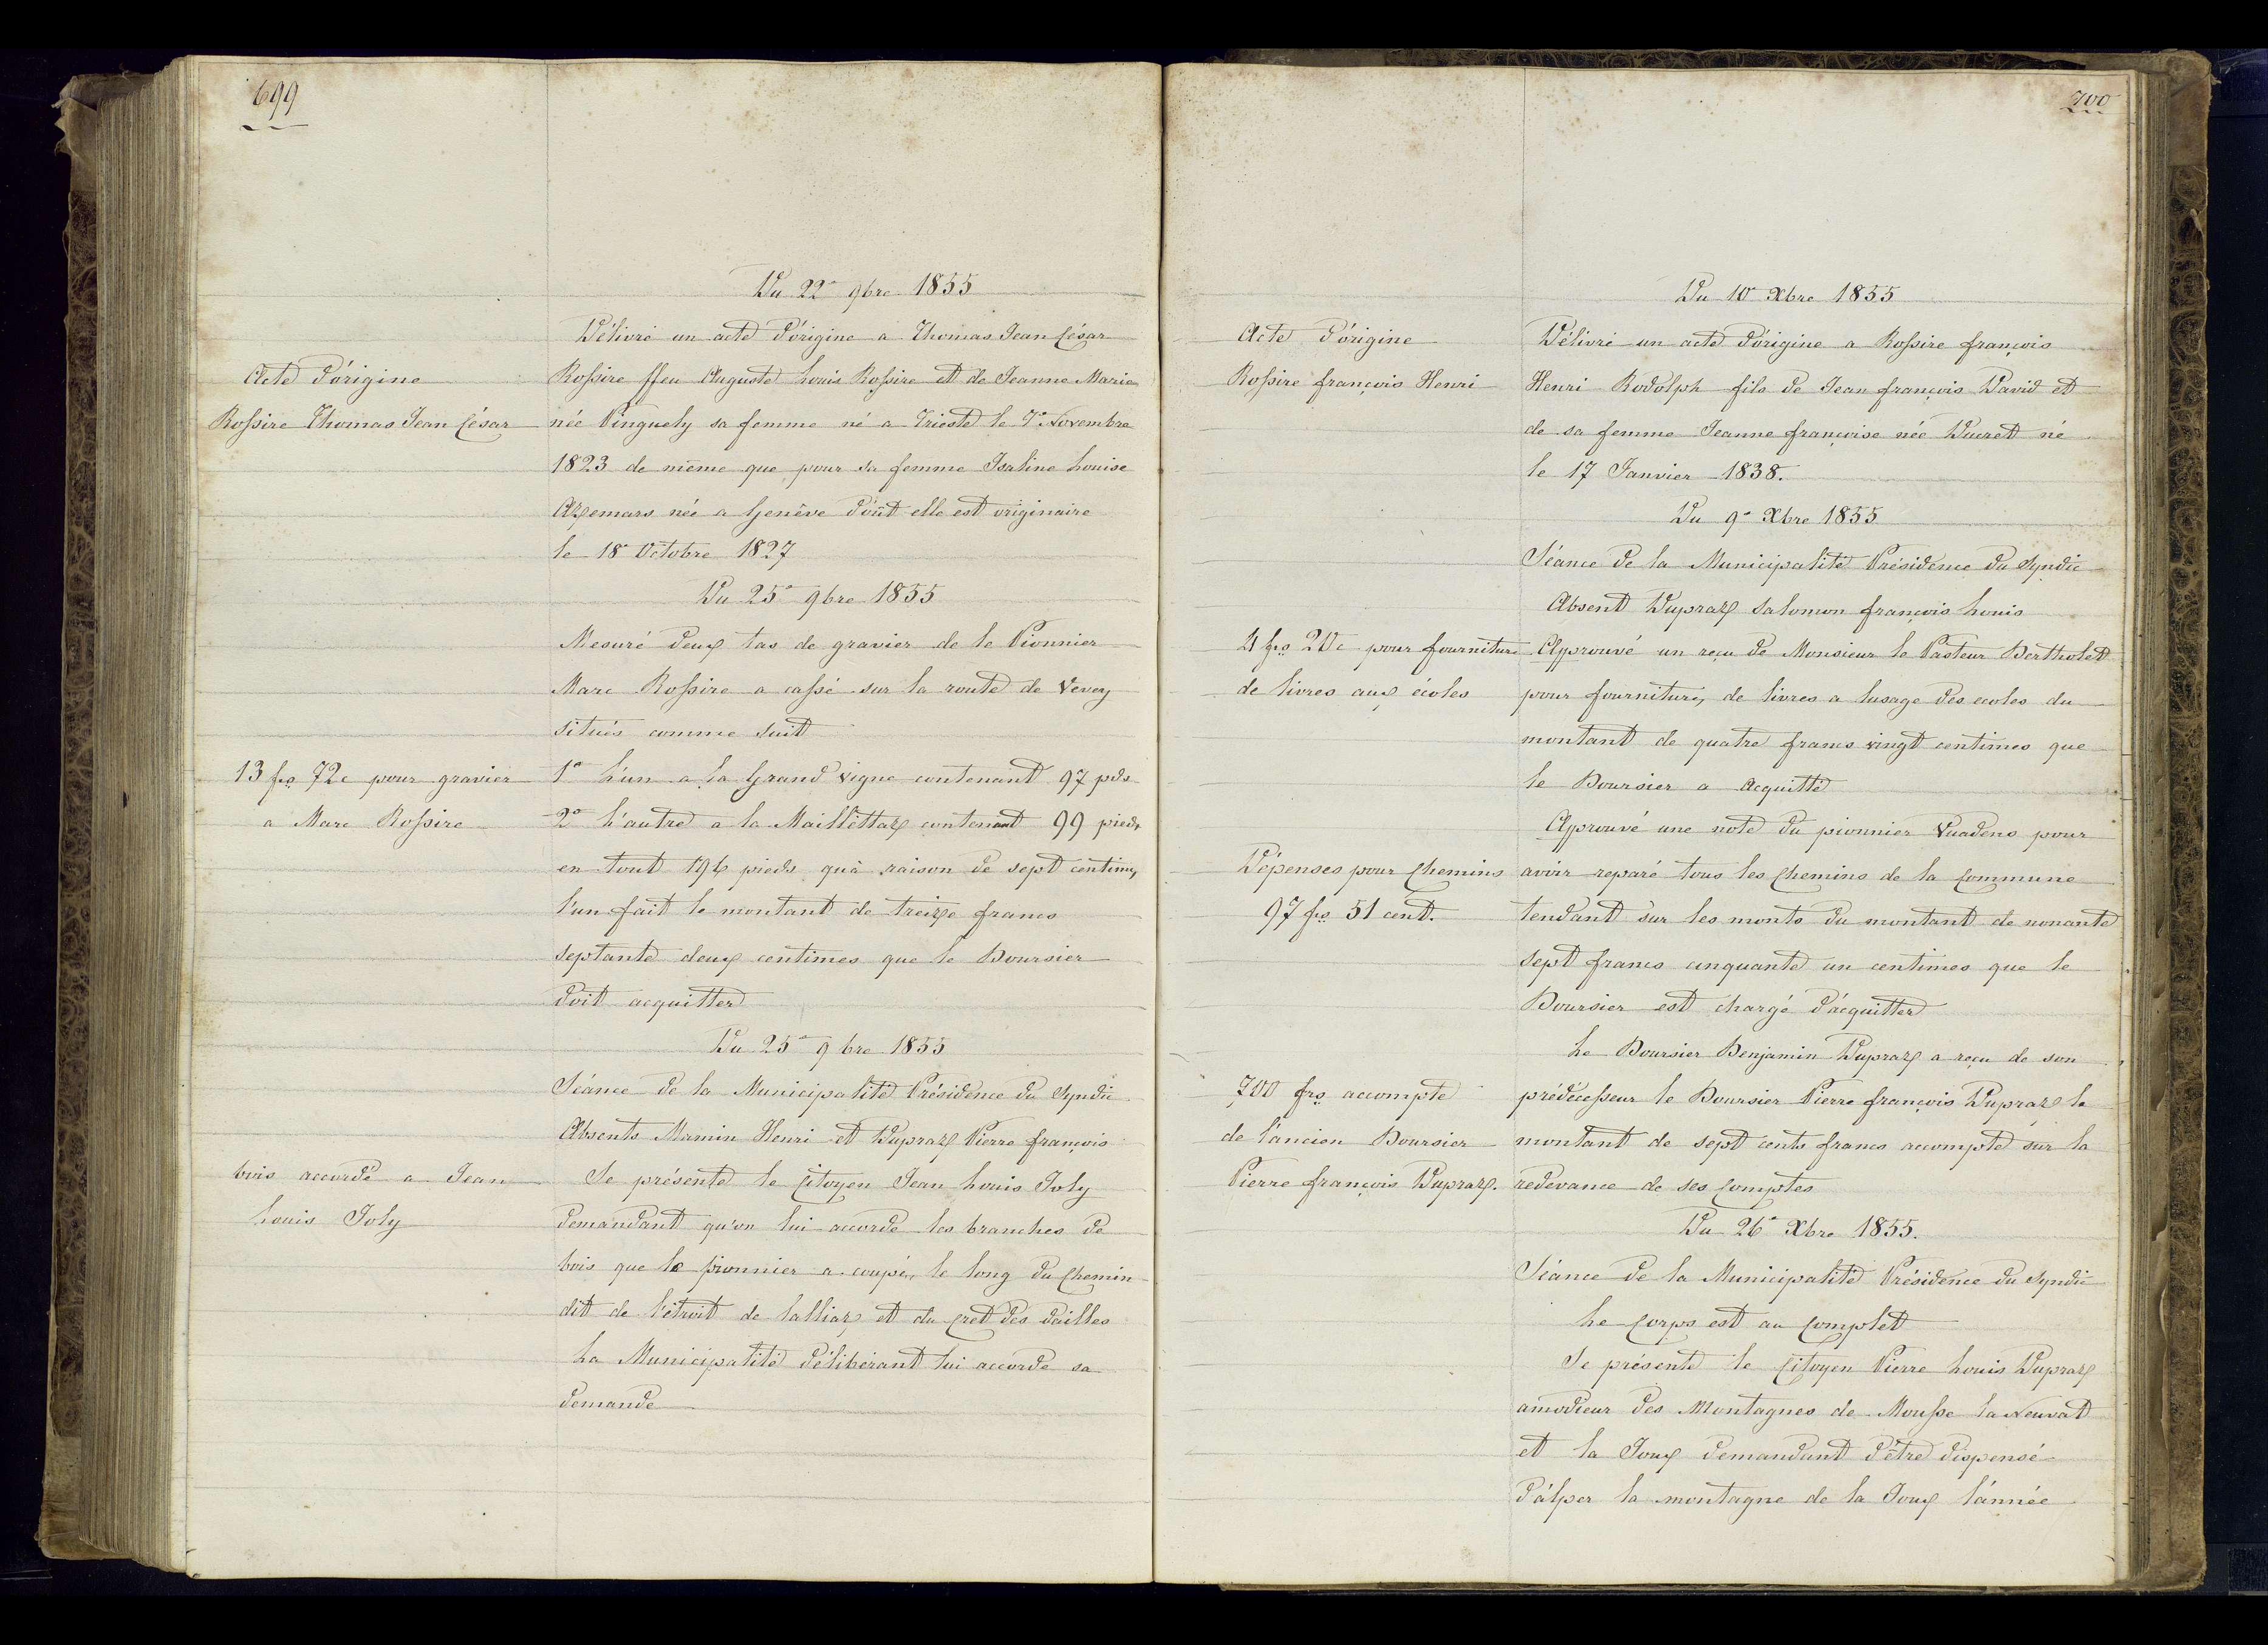 699
Du 22e 9bre 1855
Délivré un acte d'origine a Thomas Jean César
Acte d'origine
Rossire ffeu Auguste Louis Rossire et de Jeanne Marie
Rossire Thomas Jean César
née Pinguely sa femme né a Trieste le 7e Novembre
1823 de même que pour sa femme Isaline Louise
Azemars née a Genêve d'oùt elle est originaire
le 18e Octobre 1827
Du 25e 9bre 1855
Mesuré deux tas de gravier de le Pionnier
Marc Rossire a cassé sur la route de Vevey
situés comme suit
13 frs 72c pour gravier
1o L'un a la Grand Vigne contenant 97 pds
a Marc Rossire
2o L'autre a la Maillëttaz contenant 99 pieds
en tout 196 pieds qu'à raison de sept centimes
l'un fait le montant de treize francs
septante deux centimes que le Boursier
doit acquitter
Du 25e 9bre 1855
Séance de la Municipalité Présidence du Syndic
Absents Mamin Henri et Dupraz Pierre françois
bois accordé a Jean
Se présente le Citoyen Jean Louis Joly
Louis Joly
demandant qu'on lui accorde les branches de
bois que le pionnier a coupé le long du Chemin
dit de l'étroit de lalliaz et du Cret des dailles
La Municipalité délibérant lui accorde sa
demande
700
Du 10e Xbre 1855
Acte d'origine
Délivré un acte d'origine a Rossire françois
Rossire françois Henri
Henri Rodolph fils de Jean françois David et
de sa femme Jeanne françoise née Ducret né
le 17 Janvier 1838.
Du 9e Xbre 1855
Séance de la Municipalité Présidence du Syndic
Absent Dupraz Salomon françois Louis
4 frs 20c pour fourniture
Approuvé un reçu de Monsieur le Pasteur Bertholet
de livres aux écoles
pour fournitures de livres a lusage des ecoles du
montant de quatre francs vingt centimes que
le Boursier a acquitté
Approuvé une note du pionnier Vuadens pour
Dépenses pour Chemins
avoir reparé tous les Chemins de la Commune
97 frs 51 cent.
tendant sur les monts du montant de nonante
sept francs cinquante un centimes que le
Boursier est chargé d'acquitter
Le Boursier Benjamin Dupraz a reçu de son
700 frs accompte
prédécesseur le Boursier Pierre françois Dupraz le
de l'ancien Boursier
montant de sept cents francs accompte sur la
Pierre françois Dupraz.
redevance de ses Comptes
Du 26e Xbre 1855.
Séance de la Municipalité Présidence du Syndic
Le Corps est au Complet
Se présente le Citoyen Pierre Louis Dupraz
amodieur des Montagnes de Mousse la Neuvat
et la Joux demandant d'être dispensé
d'alper la montagne de la Joux l'année